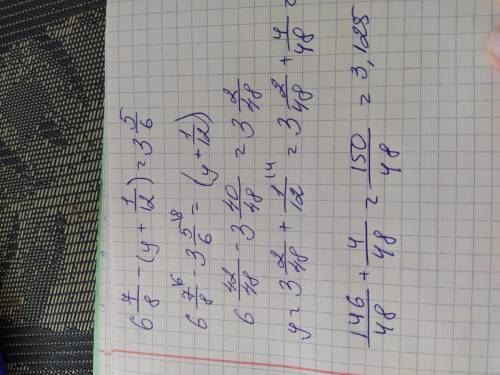 6 7/8 - (y + 1/12) = 3 5/6
6 7/8 ⁶ - 3 5/6 ⁸ = (y + 1/12)
6 42/48 - 3 40/48 = 3 2/48
y = 3 2/48 + 1/12 ⁴ = 3 2/48 + 4/48 =
146/48 + 4/48 = 150/48 = 3,125